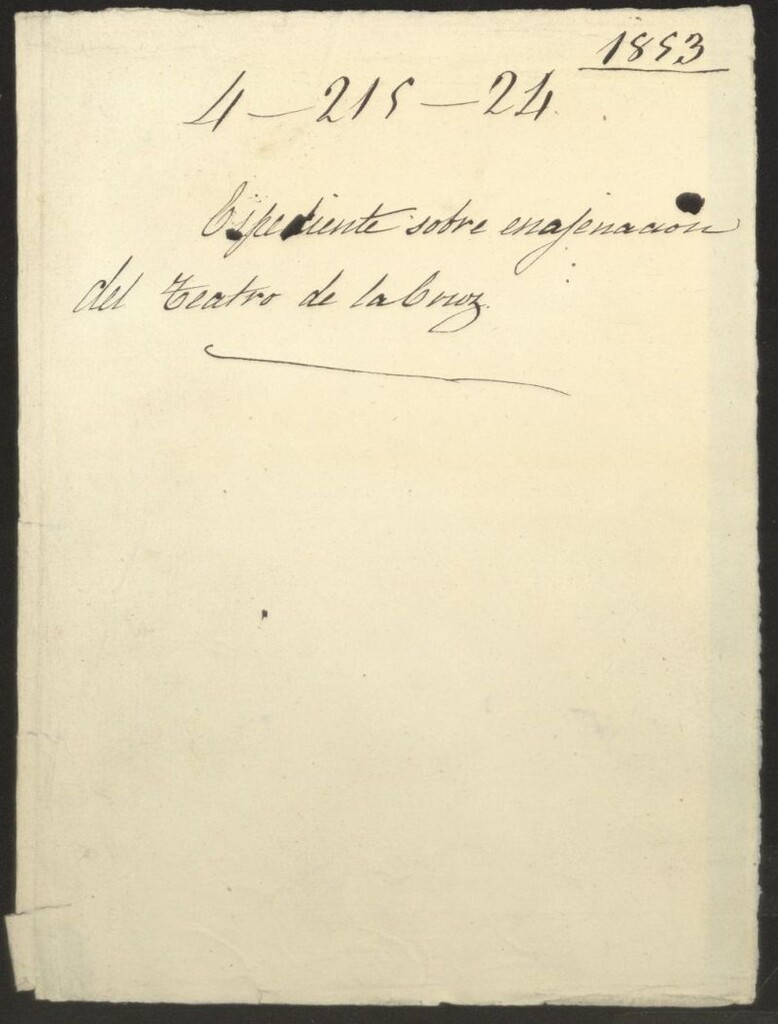 1853
4-215-24
Espediente sobre enajenacion
del Teatro de la Cruz.